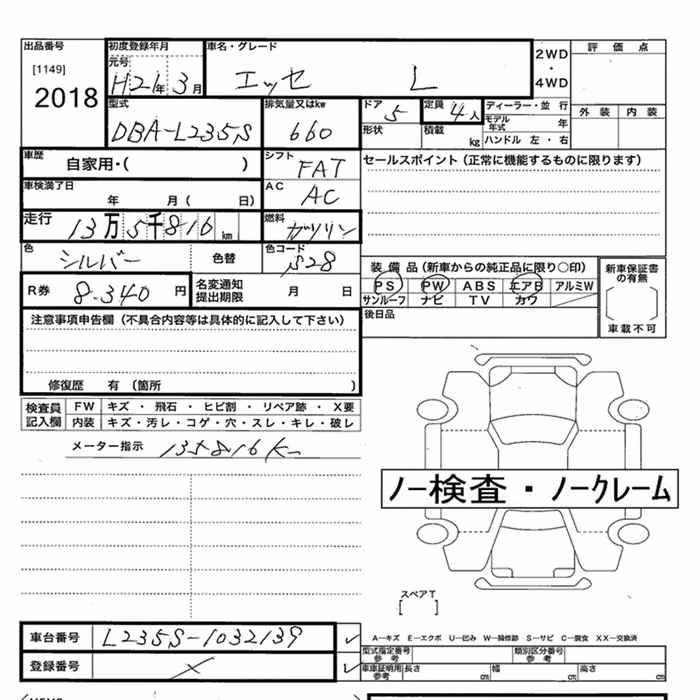 出品番号 初度登録年月 車名・グレード 2WD ・ 4WD 評価点
[1149] 元号 H21年3月 エッセ L
2018 外装 内装
型式 排気量又はkw ドア 5 定員 4人 ディーラー・並行
DBA-L235S 660 形状 積載 kg モデル年式 年
ハンドル 左・右
車歴 自家用・( ) シフト FAT セールスポイント(正常に機能するものに限ります)
車検満了日 年 月( 日) AC AC
走行 13万5千816km 燃料 ガソリン
色 シルバー 色替 色コード S28
装備品(新車からの純正品に限り○印) 新車保証書の有無
R券 8.340円 名変通知提出期限 月 日 PS PW ABS エアB アルミW
サンルーフ ナビ TV カワ
注意事項申告欄(不具合内容等は具体的に記入して下さい) 後日品 車載不可
修復歴 有 (箇所 )
検査員記入欄 FW キズ・飛石・ヒビ割・リペア跡・X要
内装 キズ・汚レ・コゲ・穴・スレ・キレ・破レ
メーター指示 135816K
ノー検査・ノークレーム
スペアT
[ ]
車台番号 L235S-1032139 A-キズ E-エクボ U-凹み W-補修跡 S-サビ C-腐食 XX-交換済
登録番号 × 型式指定番号 参考 類別区分番号 参考
車車証明用 参考 長さ cm 幅 cm 高さ cm